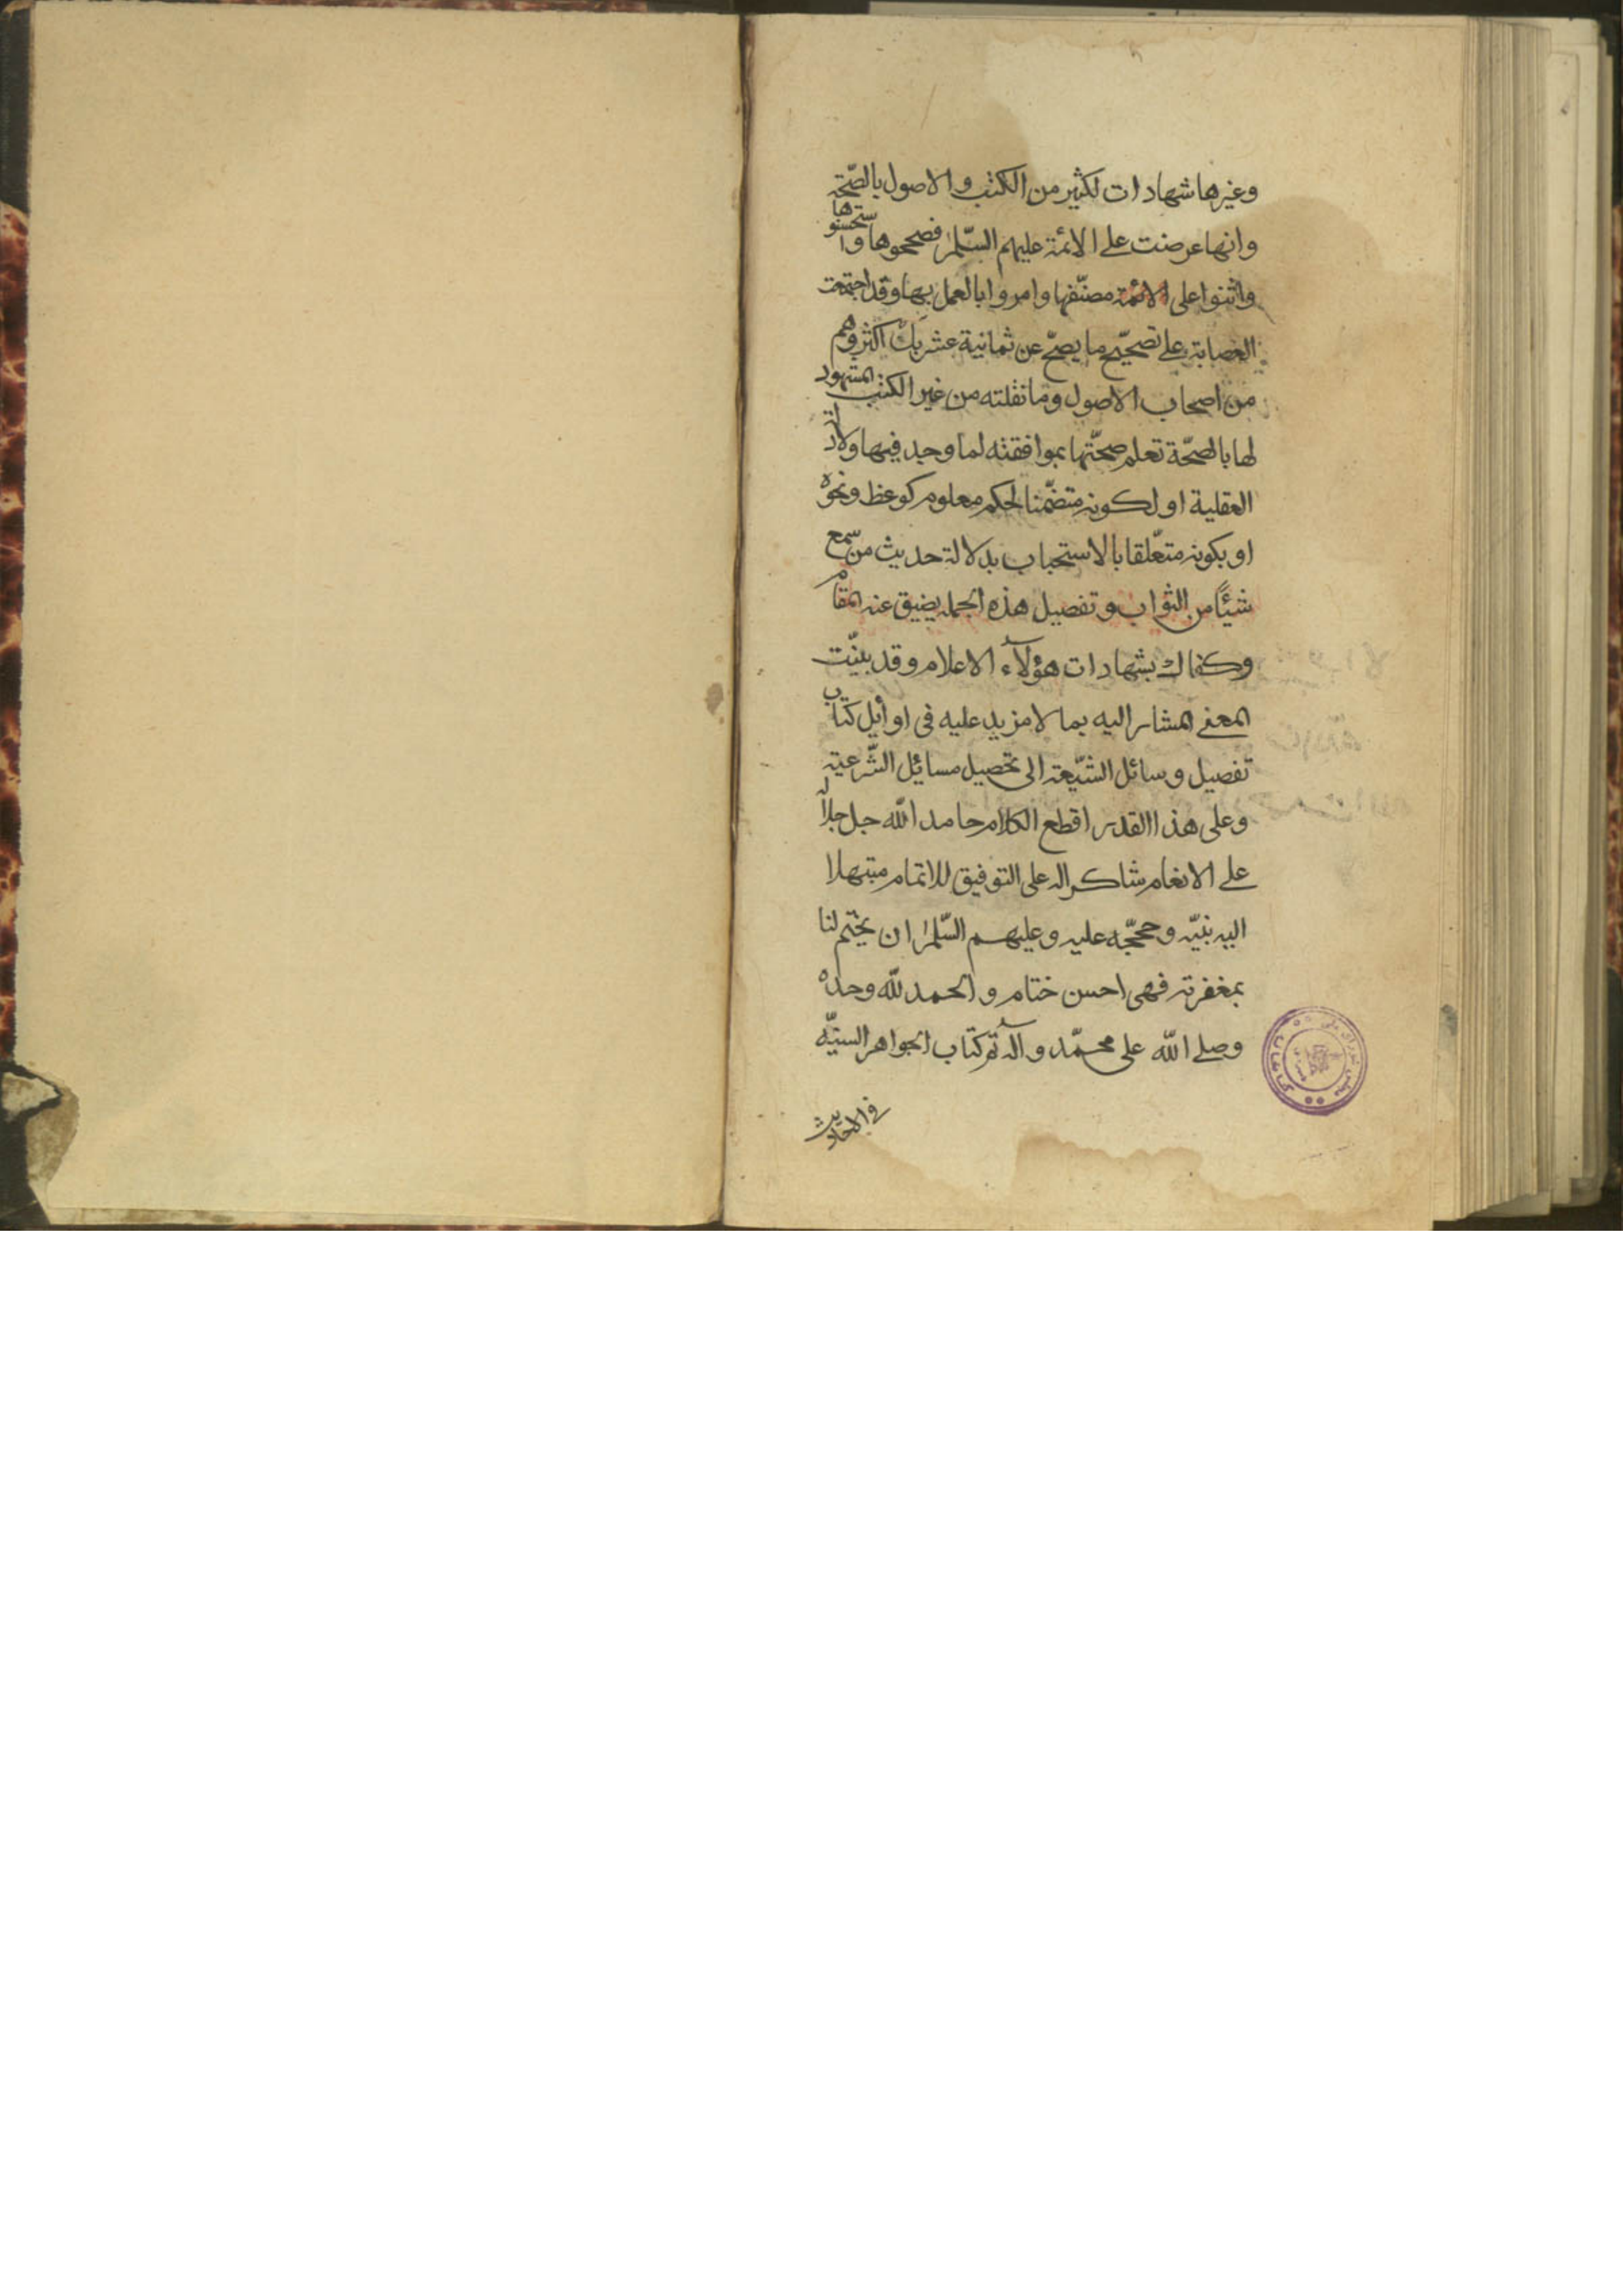 وغيرها شهادات لكثير من الكتب والاصول بالصّحة
وانها عرضت على الائمة عليهم السّلم فصححوها واستحسنوها
واثنوا على الائمة مصنّفها وامروا بالعمل بها وقد اجتمعت
العصابة على تصحيح ما يصحّ عن ثمانية عشر بل اكثر وهم
من اصحاب الاصول وما نقلته من غير الكتب المشهود
لها بالصّحة تعلم صحّتها بموافقته لما وجد فيها ولادلة
العقلية او لكونه متضمّنا لحكم معلوم كوعظ ونحوه
او بكونه متعلّقا بالاستحباب بدلالة حديث من سمع
شيئًا من الثواب وتفصيل هذه الجمله يضيق عنه المقام
وكفاك بشهادات هؤلآء الاعلام وقد بيّنت
المعنى المشار اليه بما لا مزيد عليه فى اوايل كتاب
تفصيل وسائل الشّيعة الى تحصيل مسائل الشّرعية
وعلى هذا القدر اقطع الكلام حامدا للّه جل جلاله
على الانعام شاكرا له على التوفيق للاتمام مبتهلا
اليه بنبيّه وحججه عليه وعليهم السّلم ان يختم لنا
بمغفرته فهى احسن ختام والحمد للّه وحده
وصلى اللّه على محمّد وآله تم كتاب الجواهر السنيّه
فى الاحاديث